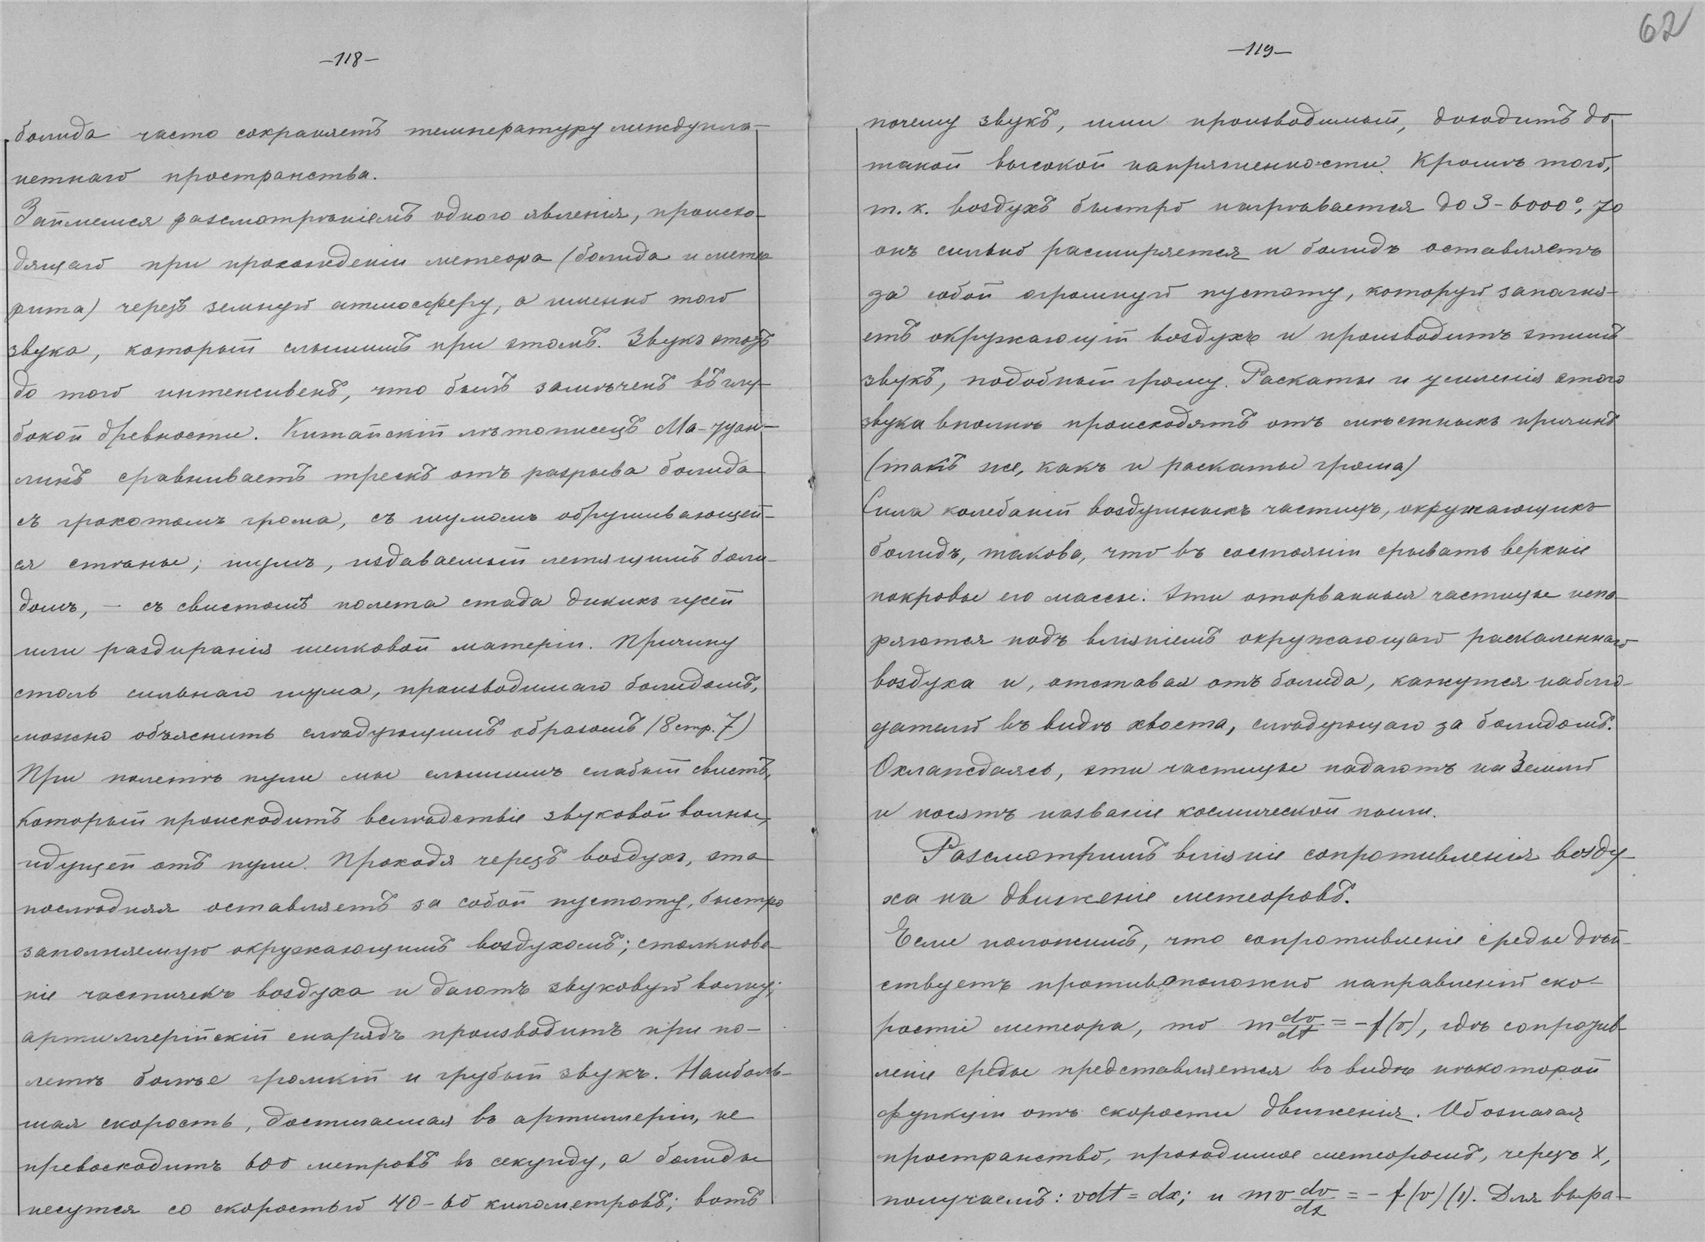 62
—118—
болида часто сохраняетъ температуру междупла-
нетнаго пространства.
Займемся разсмотрѣніемъ одного явленія, происхо-
дящаго при прохожденіи метеора (болида и метео
рита) черезъ земную атмосферу, а именно того
звука, который слышимъ при этомъ. Звукъ этотъ
до того интенсивенъ, что былъ замѣченъ въ глу-
бокой древности. Китайскій лѣтописецъ Ма-
линъ сравниваетъ трескъ отъ разрыва болида
съ грохотомъ грома, съ шумомъ обрушивающей-
ся стѣны; шумъ, издаваемый летящимъ боли-
домъ, — съ свистомъ полета стада дикихъ гусей
или раздиранія шелковой матеріи. Причину
столь сильнаго шума, производимаго болидомъ,
можно объяснить слѣдующимъ образомъ (8 стр. 7)
При полетѣ пули мы слышимъ слабый свистъ,
который происходитъ вслѣдствіе звуковой волны,
идущей отъ пули. Проходя черезъ воздухъ, эта
послѣдняя оставляетъ за собой пустоту, быстро
заполняемую окружающимъ воздухомъ; столкнове-
ніе частичекъ воздуха и даютъ звуковую волну;
артиллерійскій снарядъ производитъ при по-
летѣ болѣе громкій и грубый звукъ. Наиболь-
шая скорость, достигаемая въ артиллеріи, не
превосходитъ 600 метровъ въ секунду, а болиды
несутся со скоростью 40-60 километровъ; вотъ
—119—
почему звукъ, ими производимый, доходитъ до
такой высокой напряженности. Кромѣ того,
т. к. воздухъ быстро нагрѣвается до 3-6000°, то
онъ сильно расширяется и болидъ оставляетъ
за собой огромную пустоту, которую заполня-
етъ окружающій воздухъ и производитъ этимъ
звукъ, подобный грому. Раскаты и усиленія этого
звука вполнѣ происходятъ отъ мѣстныхъ причинъ
(такъ же, какъ и раскаты грома)
Сила колебаній воздушныхъ частицъ, окружающихъ
болидъ, такова, что въ состояніи срывать верхніе
покровы его массы. Эти оторванныя частицы испа-
ряются подъ вліяніемъ окружающаго раскаленнаго
воздуха и, отставая отъ болида, кажутся наблю-
дателю въ видѣ хвоста, слѣдующаго за болидомъ.
Охлаждаясь, эти частицы падаютъ на Землю
и носятъ названіе космической пыли.
Разсмотримъ вліяніе сопротивленія возду-
ха на движеніе метеоровъ.
Если положимъ, что сопротивленіе среды дѣй-
ствуетъ противоположно направленію ско-
рости метеора, то m dv/dt = -f(v), гдѣ сопротив-
леніе среды представляется въ видѣ нѣкоторой
функціи отъ скорости движенія. Обозначая
пространство, проходимое метеоромъ, черезъ x,
получаемъ: vdt = dx; и mv dv/dx = - f(v) (1). Для выра-